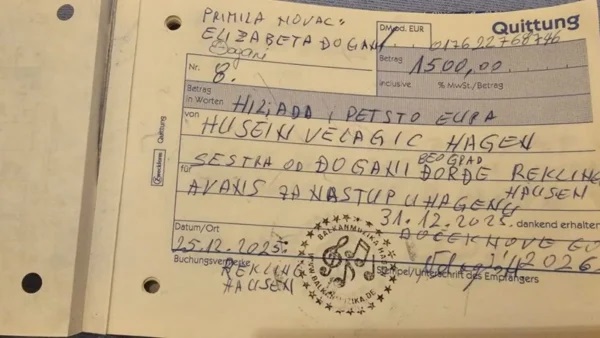 PRIMILA NOVAC:
ELIZABETA ĐOGANI
Đogani
Quittung
DM od. EUR
017622768746
Nr. 8.
Betrag 1500,00
inclusive % MwSt./Betrag
Betrag in Worten HILJADA I PETSTO EURA
von HUSEIN VELAGIC HAGEN
BEOGRAD
für SESTRA OD ĐOGANI ĐORĐE REKLING
HAUSEN
AVANS ZA NASTUP U HAGENU
31.12.2025. dankend erhalten
DOČEK NOVE
2026
Datum/Ort
25.12.2025.
Buchungsvermerke
REKLING
HAUSEN
Stempel/Unterschrift des Empfängers
BALKANMUZIKA
WWW.BALKANMUZIKA.DE
Quittung